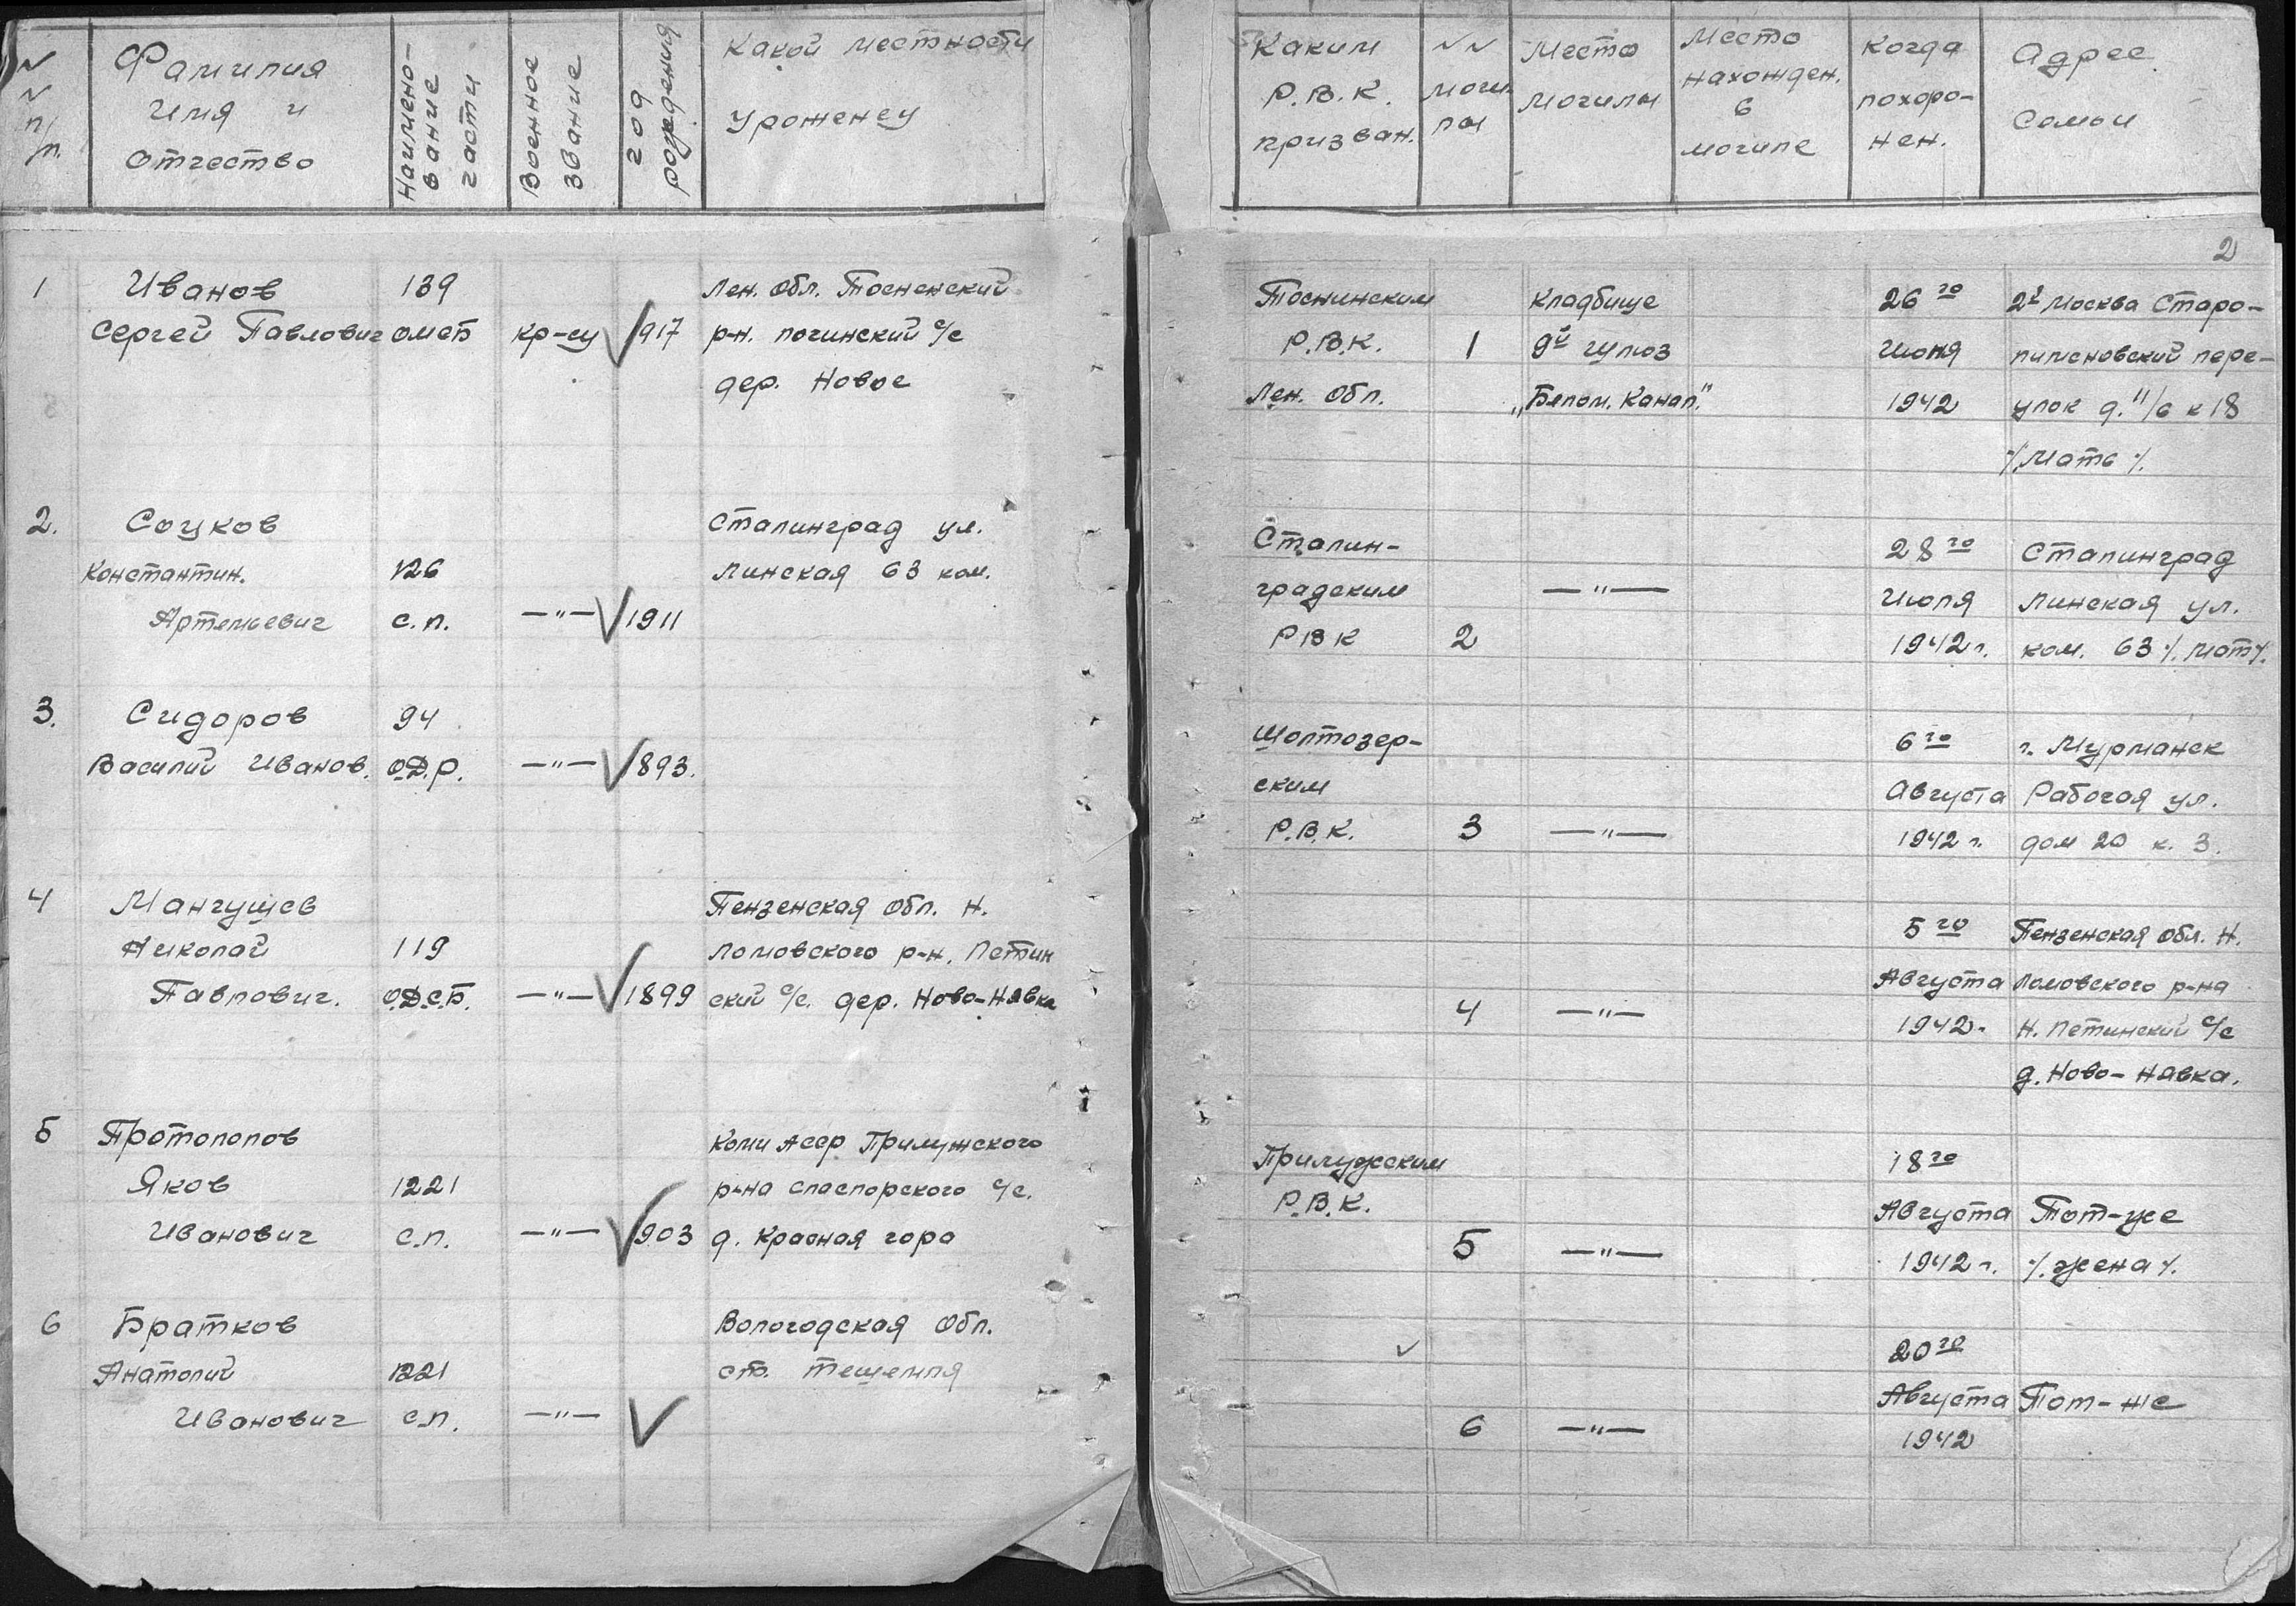 № № п/п.
Фамилия
Имя и
Отчество
Наимено-
вание
части
Военное
звание
год
рождения
Какой местности
уроженец
Каким
Р.В.К.
призван.
№ №
моги-
лы
Место
могилы
Место
нахожден.
в
могиле
Когда
похоро-
нен.
Адрес
Семьи
2
1 Иванов 139 Лен. Обл. Тосненский
Сергей Павлович омсб кр-ец 1917 р-н. с/с
дер. Новое
Тоснинским Кладбище 26го 2й Москва Старо-
Р.В.К. 1 9й шлюз Июня пименовский пере-
Лен. Обл. „Белом. Канал." 1942 улок д. 11/6 к 18
/. Мать /.
2. Соцков Сталинград ул.
Константин. 126 Линская 63 ком.
Артемьевич с.п. —"— 1911
Сталин- 28го Сталинград
градским —"— Июля Линская ул.
РВК 2 1942 г. ком. 63 /. мать /.
3. Сидоров 94
Василий Иванов. О.Д.Р. —"— 1893.
Шолтозер- 6го г. Мурманск
ским Августа Рабочая ул.
Р.В.К. 3 —"— 1942 г. дом 20 к. 3.
4 Мангушев Пензенская Обл. Н.
Николай 119 Ломовского р-н. Летин
Павлович. О.Д.С.Б. —"— 1899 ский с/с. дер. Ново-Нявка
5го Пензенская Обл. Н.
Августа Ломовского р-на
4 —"— 1942 г. Н. Летинский с/с
д. Ново-Нявка.
5 Протопопов Коми Асср Прилужского
Яков 1221 р-на спаспорского с/с.
Иванович с.п. —"— 1903 д. Красная гора
Прилужским 18го
Р.В.К. Августа Тот-же
5 —"— 1942 г. /. жена /.
6 Братков Вологодская Обл.
Анатолий 1221 ст.
Иванович с.п. —"—
20го
Августа Тот-же
6 —"— 1942